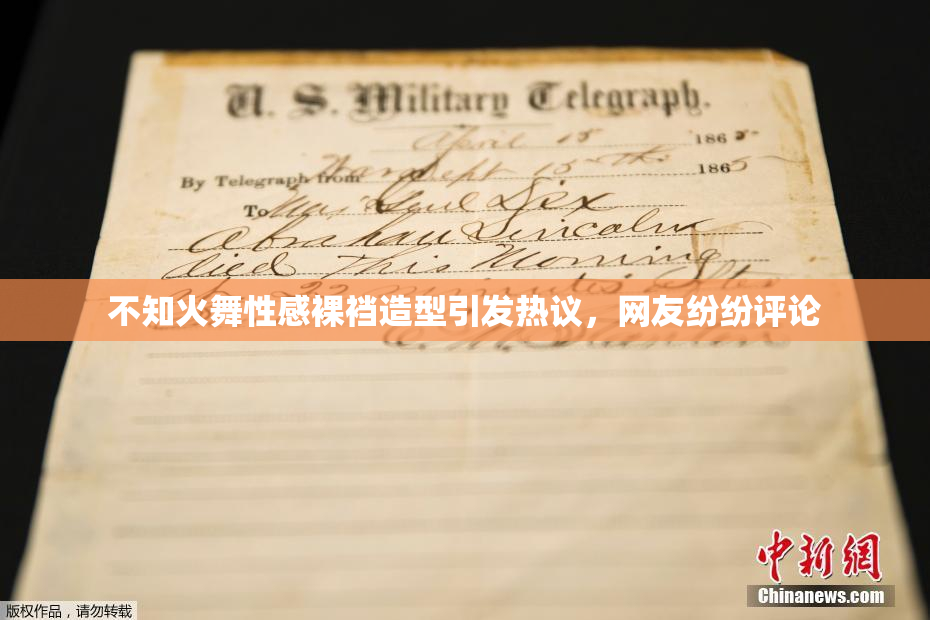 U. S. Military Telegraph.
April 15 1865
By Telegraph from War Dept 15th 1865
To Maj Genl Dix
Abraham Lincoln
died This Morning
at 22 minutes after
不知火舞性感裸裆造型引发热议，网友纷纷评论
E. M. Stanton
中新網
Chinanews.com
版权作品，请勿转载